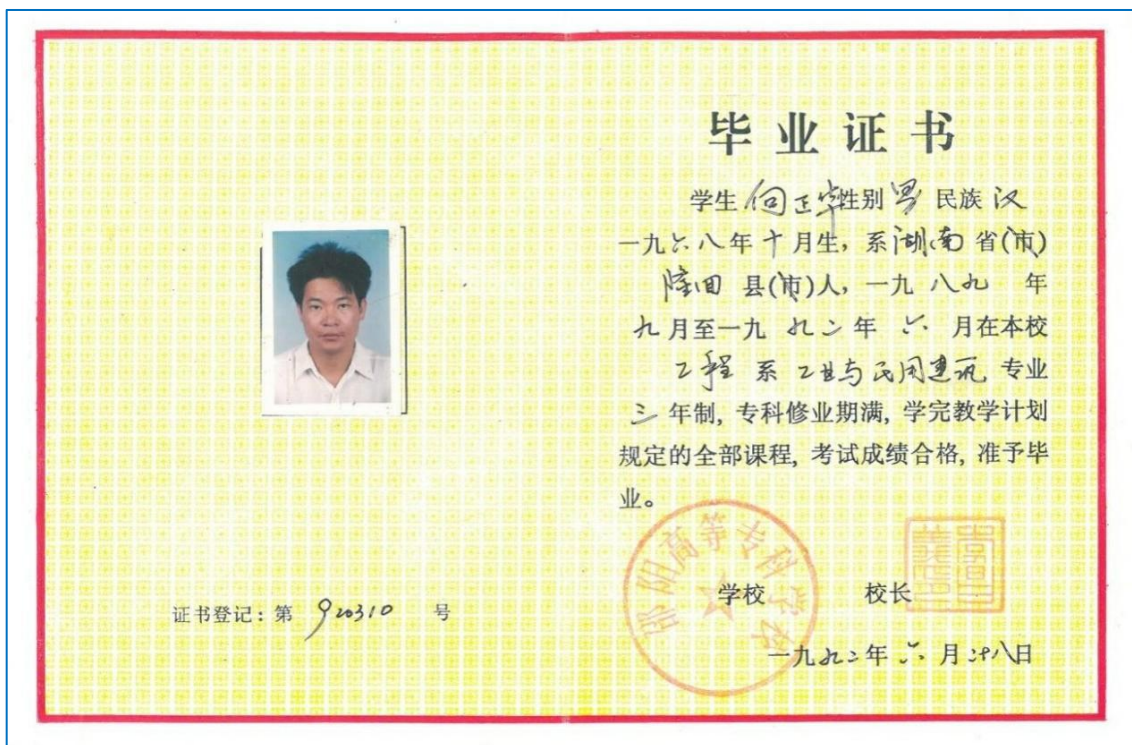 毕业证书
学生 向正华 性别 男 民族 汉
一九六八年十月生，系湖南省(市)
隆回 县(市)人，一九八九 年
九月至一九九二年 六 月在本校
工程 系 工业与民用建筑 专业
三 年制，专科修业期满，学完教学计划
规定的全部课程，考试成绩合格，准予毕
业。
邵阳高等专科学校
学校 校长
一九九二年 六 月廿八日
证书登记：第 920310 号